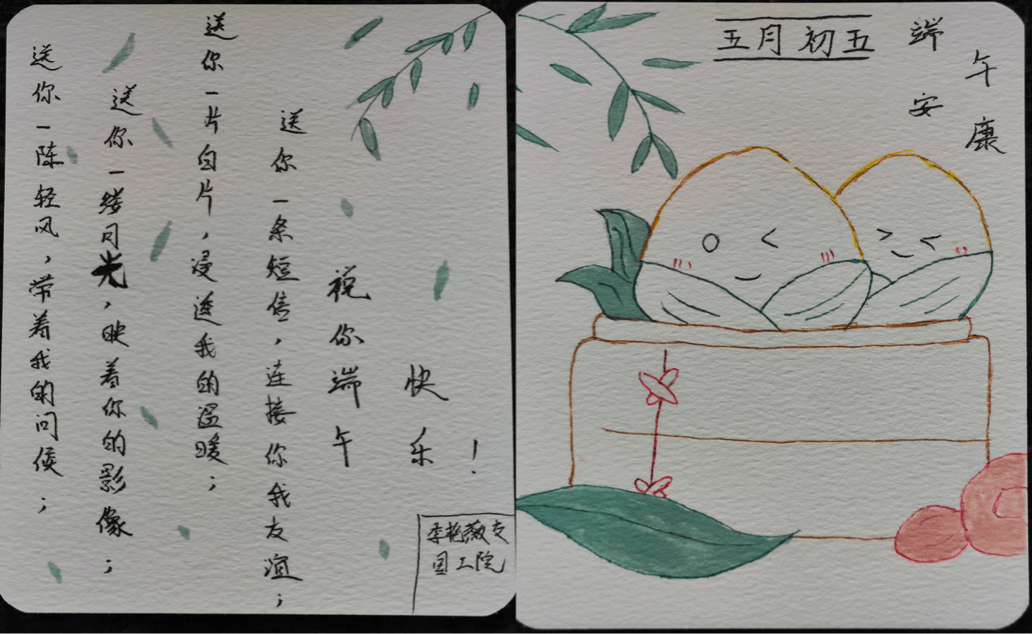 送你一陈轻风，带着我的问候；
送你一缕月光，映着你的影像；
送你一片白片，浸透我的温暖；
送你一条短信，连接你我友谊；
祝你端午
快乐！
李艳薇
国工院
五月初五
端午
安康